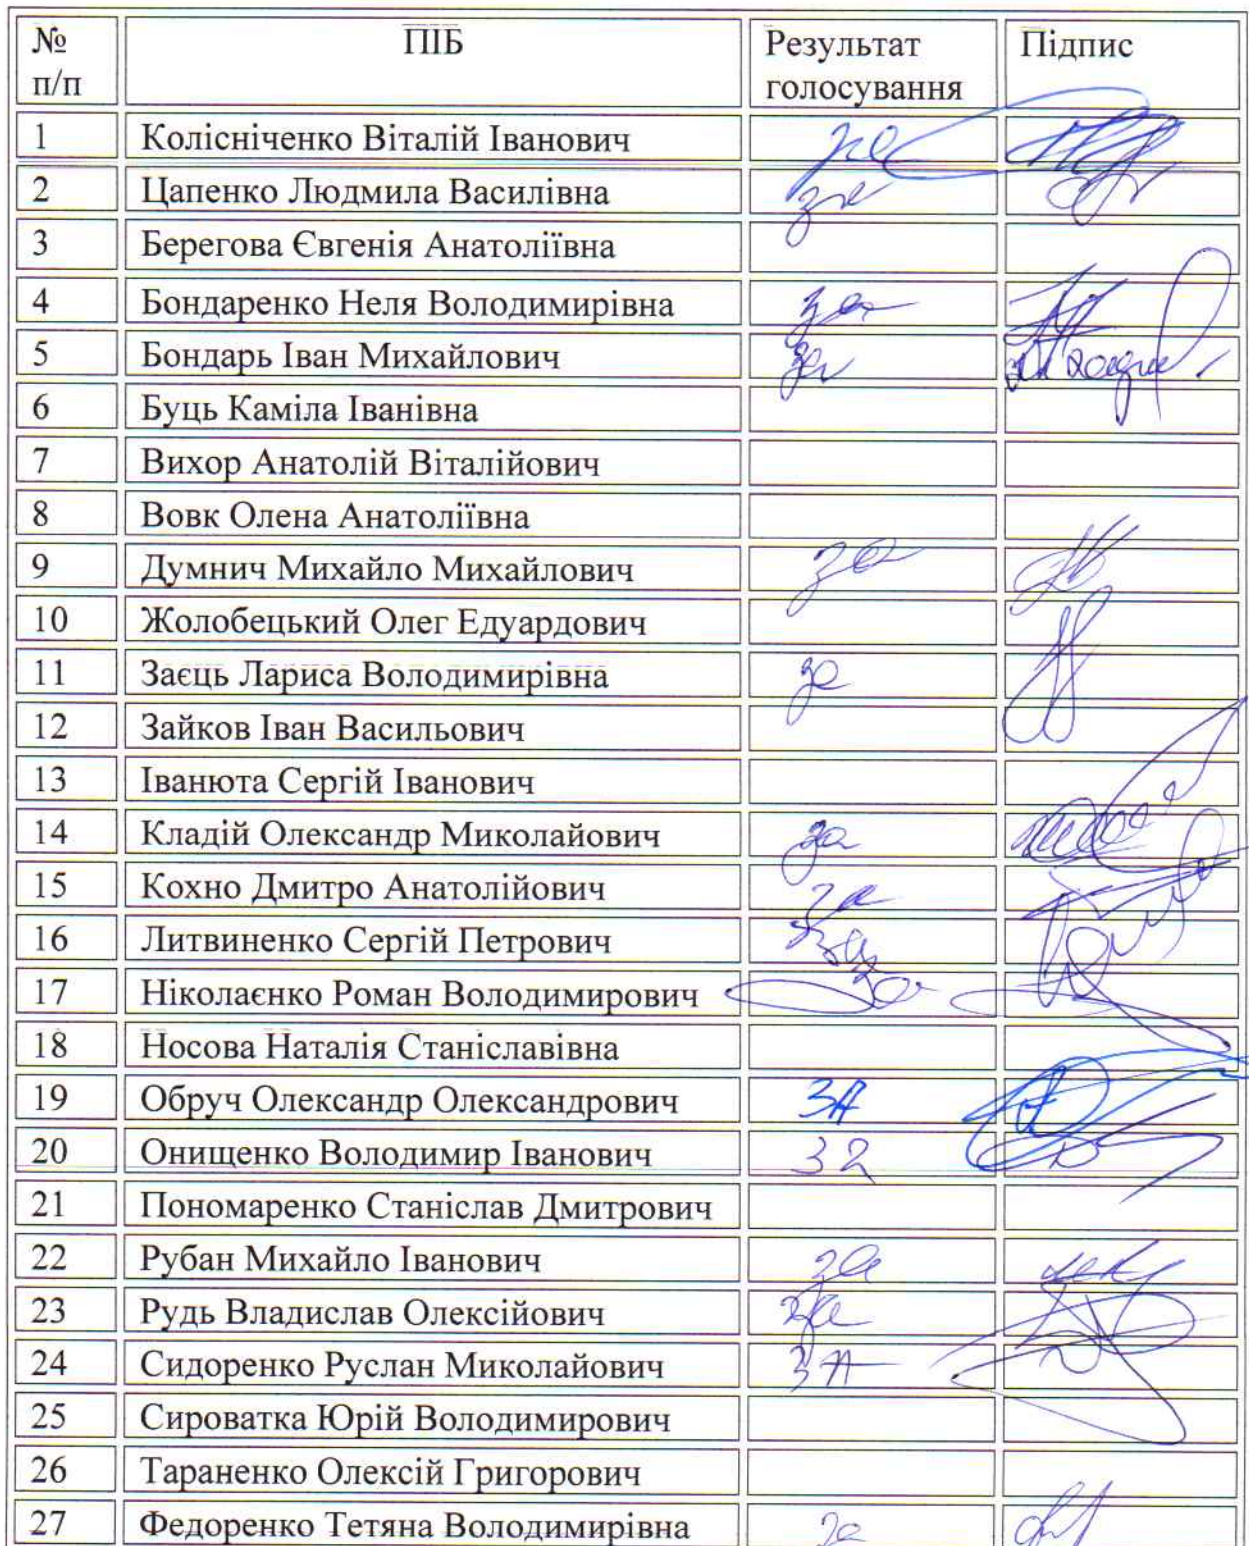 № п/п ПІБ Результат голосування Підпис
1 Колісніченко Віталій Іванович за
2 Цапенко Людмила Василівна за
3 Берегова Євгенія Анатоліївна
4 Бондаренко Неля Володимирівна за
5 Бондарь Іван Михайлович за
6 Буць Каміла Іванівна
7 Вихор Анатолій Віталійович
8 Вовк Олена Анатоліївна
9 Думнич Михайло Михайлович за
10 Жолобецький Олег Едуардович
11 Заєць Лариса Володимирівна за
12 Зайков Іван Васильович
13 Іванюта Сергій Іванович
14 Кладій Олександр Миколайович за
15 Кохно Дмитро Анатолійович за
16 Литвиненко Сергій Петрович за
17 Ніколаєнко Роман Володимирович за
18 Носова Наталія Станіславівна
19 Обруч Олександр Олександрович ЗА
20 Онищенко Володимир Іванович за
21 Пономаренко Станіслав Дмитрович
22 Рубан Михайло Іванович за
23 Рудь Владислав Олексійович за
24 Сидоренко Руслан Миколайович ЗА
25 Сироватка Юрій Володимирович
26 Тараненко Олексій Григорович
27 Федоренко Тетяна Володимирівна за